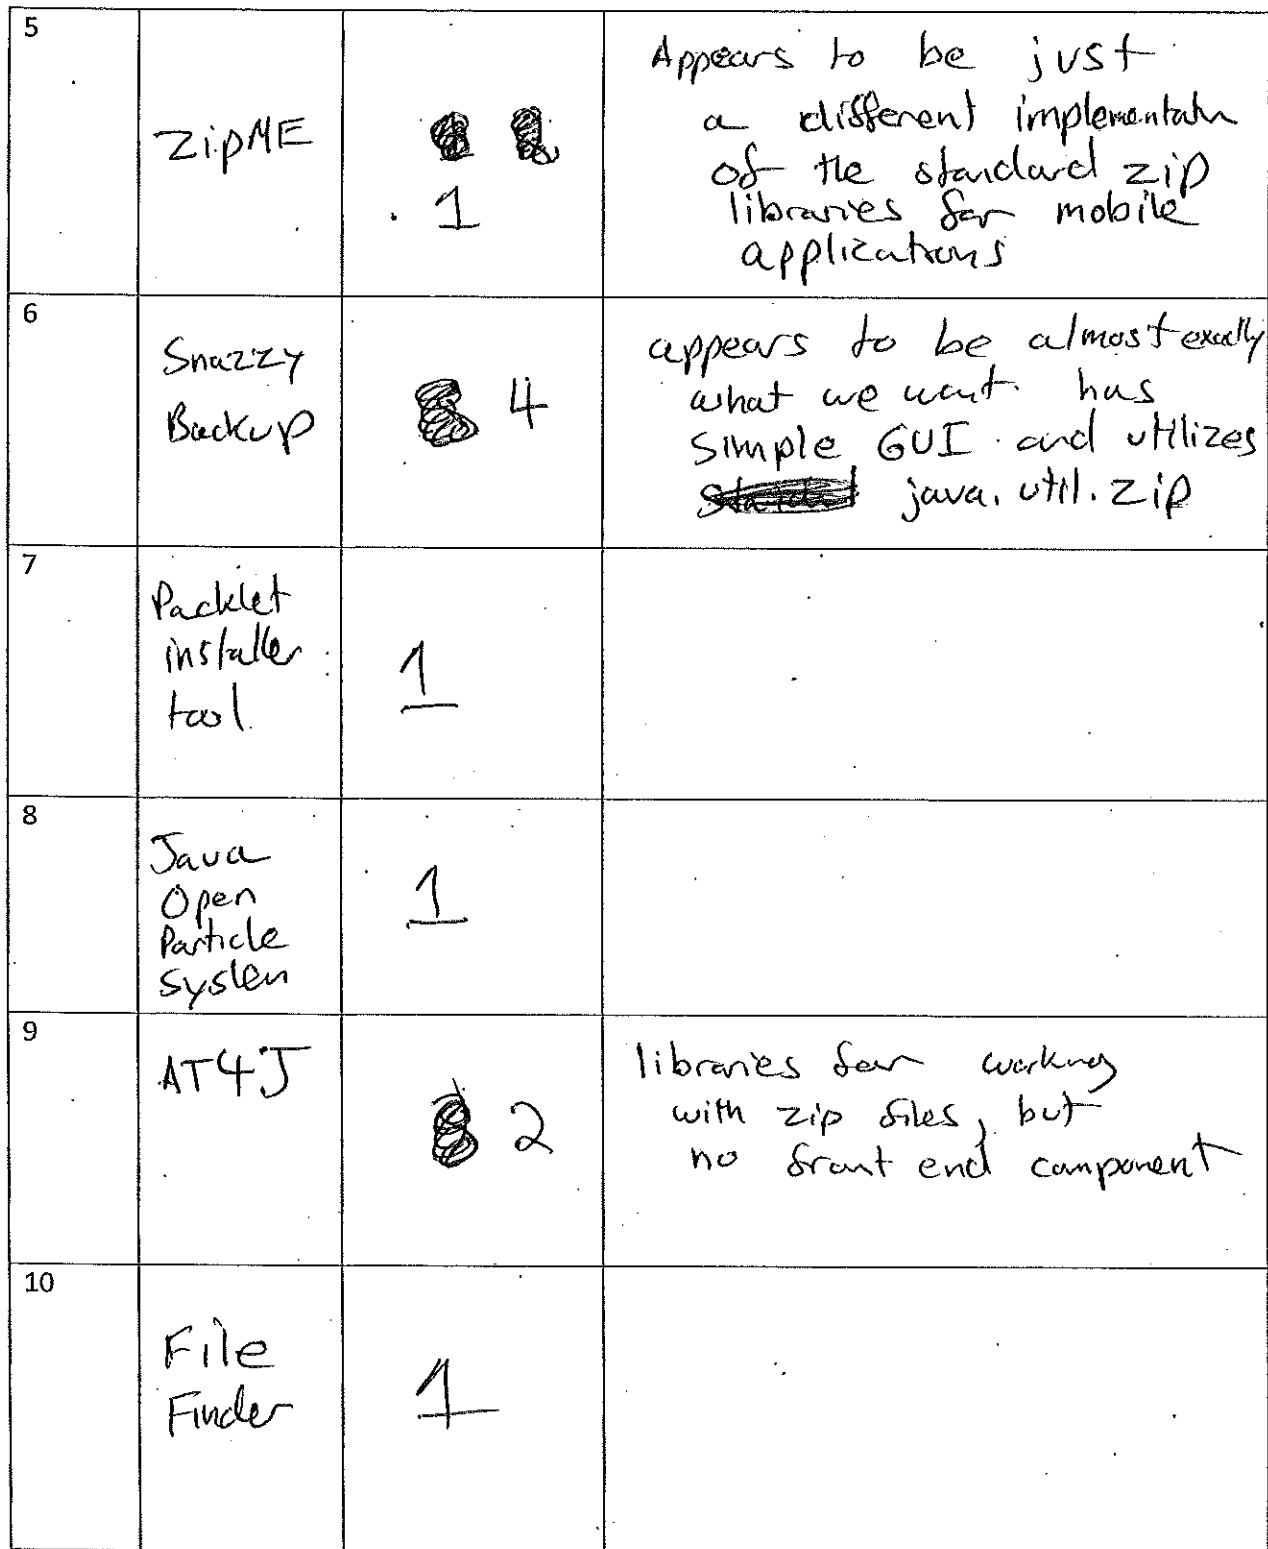 5
ZipME
1
Appears to be just
a different implementatn
of the standard zip
libraries for mobile
applications
6
Snazzy
Backup
4
appears to be almost exactly
what we want. has
simple GUI and utilizes
java.util.zip
7
Packlet
installer
tool
1
8
Java
Open
Particle
System
1
9
AT4J
2
libraries for working
with zip files, but
no front end component
10
File
Finder
1